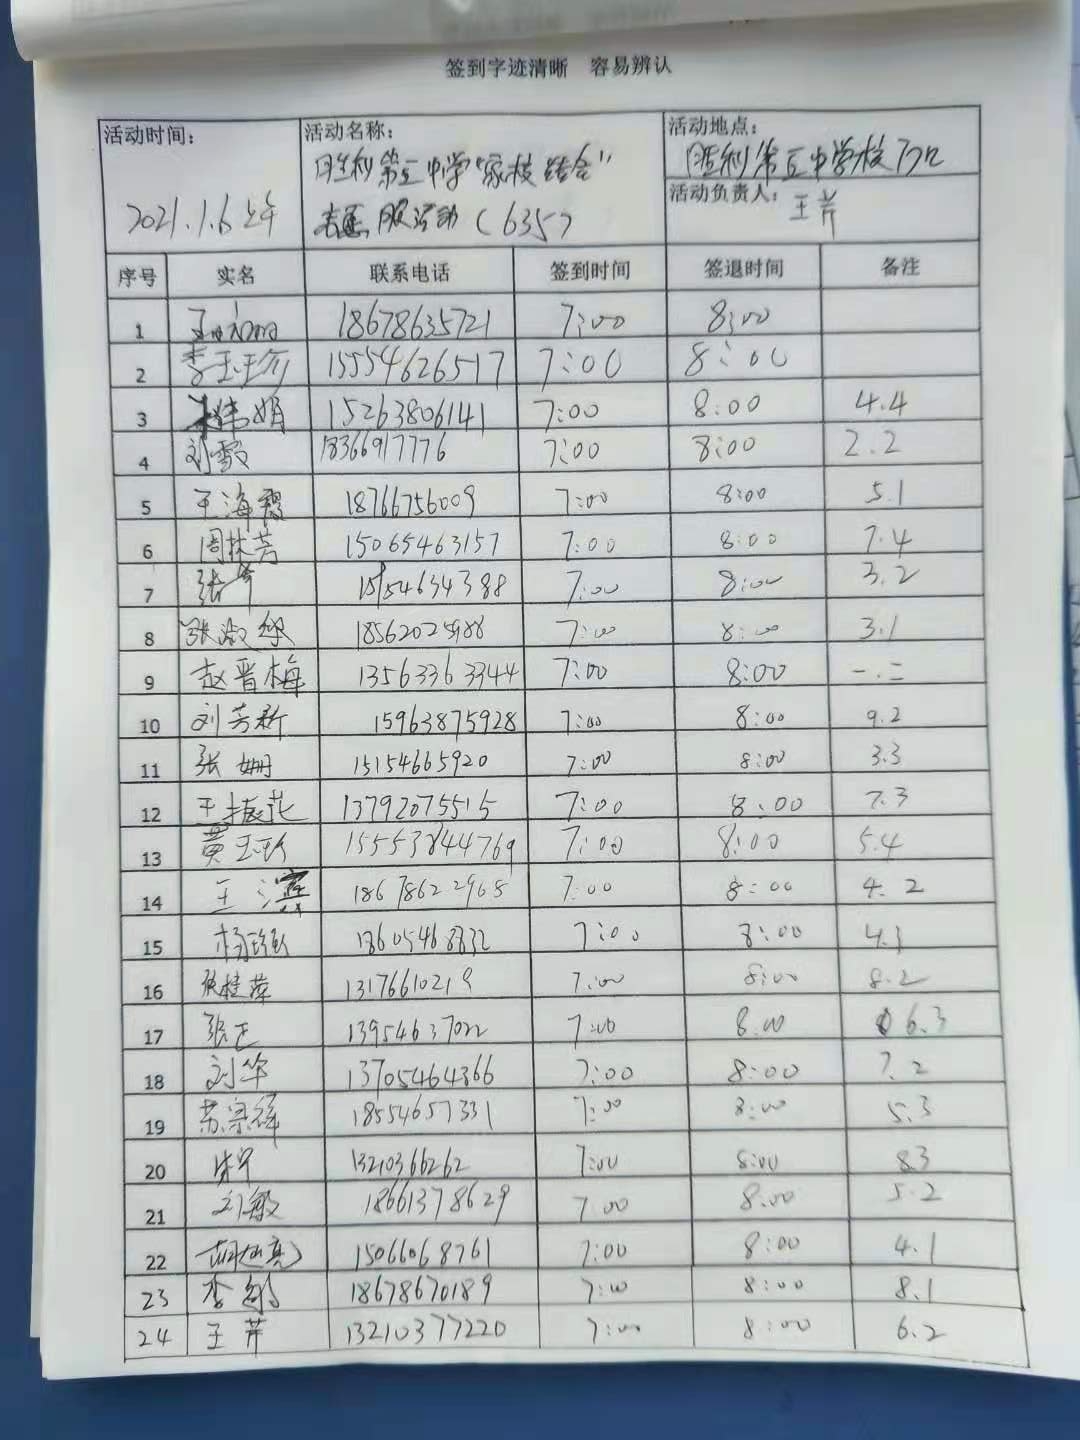 签到字迹清晰 容易辨认
活动时间: 2021.1.6上午
活动名称: 胜利第五中学"家校结合"
志愿服活动(635)
活动地点: 胜利第五中学校门口
活动负责人: 王芹
序号 实名 联系电话 签到时间 签退时间 备注
1 18678635721 7:00 8:00
2 李玉珍 15554626517 7:00 8:00
3 伟娟 15263806141 7:00 8:00 4.4
4 刘霞 18366917776 7:00 8:00 2.2
5 王海霞 18766756009 7:00 8:00 5.1
6 周林芳 15065463157 7:00 8:00 7.4
7 张 7:00 8:00 3.2
8 张淑 7:00 8:00 3.1
9 赵晋梅 13563363344 7:00 8:00 一.二
10 刘芳新 15963875928 7:00 8:00 9.2
11 张姗 15154665920 7:00 8:00 3.3
12 王振花 13792075515 7:00 8:00 7.3
13 黄玉珍 7:00 8:00 5.4
14 王 18678622968 7:00 8:00 4.2
15 杨 13605468832 7:00 8:00 4.3
16 张桂萍 13176610219 7:00 8:00 8.2
17 张 13954637022 7:00 8:00 6.3
18 刘华 13705464366 7:00 8:00 7.2
19 苏宗祥 18554657331 7:00 8:00 5.3
20 13210366262 7:00 8:00 8.3
21 刘敏 18661378629 7:00 8:00 5.2
22 15066068761 7:00 8:00 4.1
23 李 18678670189 7:00 8:00 8.1
24 王芹 13210377220 7:00 8:00 6.2